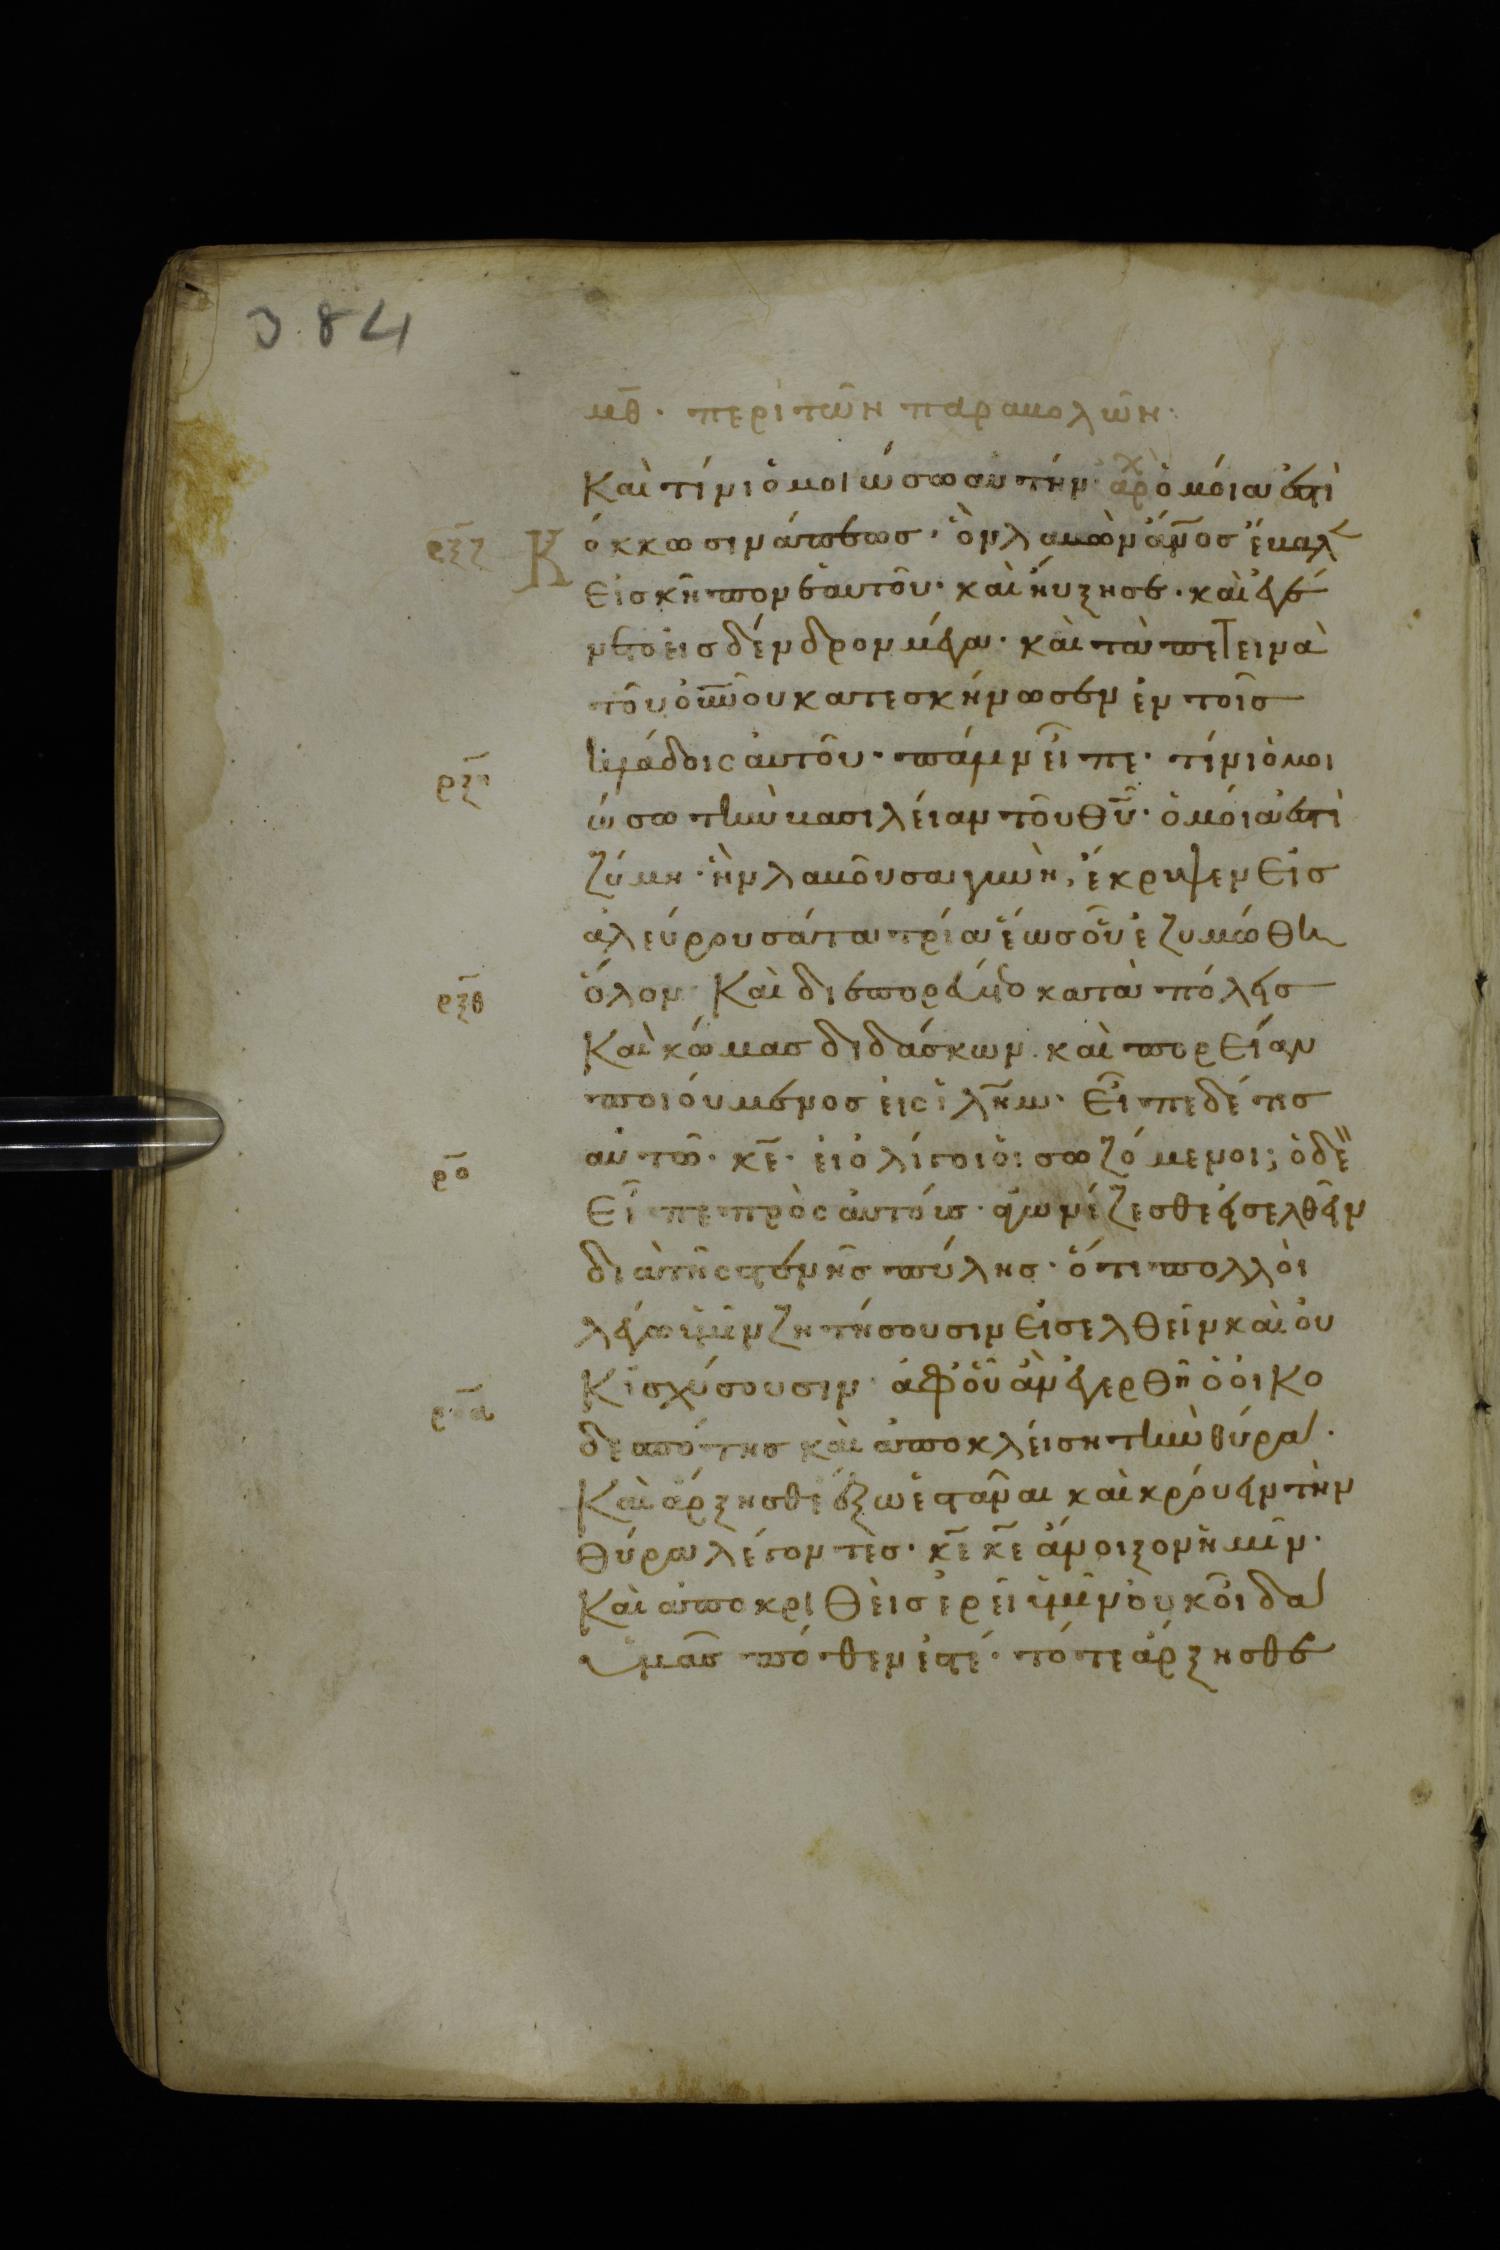 384
μθ̅· περὶ τῶν παραβολῶν·
Καὶ τίνι ὁμοιώσω αὐτήν· αρχ ὁμοία ἐστὶ
ρξζ Κ όκκω σινάπεως· ὃν λαβὼν ἄνο̅σ ἔβαλ
εἰσ κῆπον ἑαυτοῦ· καὶ ηὔξησε· καὶ ἐγέ
νετο εἰσ δένδρον μέγα· καὶ τὰ πετεινὰ
τοῦ οὐνο̅υ κατεσκήνωσεν ἐν τοῖσ
κλάδοις αὐτοῦ· πάλιν εἶπε· τίνι ὁμοι
ρξη ώσω τὴν βασιλείαν τοῦ θυ̅· ὁμοία ἐστὶ
ζύμη· ἣν λαβοῦσα γυνὴ, ἔκρυψεν εἰσ
ἀλεύρου σάτα τρία ἕωσ οὗ ἐζυμώθη
ρξθ ὅλον· Καὶ διεπορεύετο κατὰ πόλεισ
Καὶ κώμασ διδάσκων· καὶ πορείαν
ποιούμενοσ εἰς ἰλη̅μ· Εἶπε δέ τισ
ρο αὐτῶ· κε̅· εἰ ὀλίγοι οἱ σωζόμενοι; ὁ δὲ
Εἶπε πρὸς αὐτούσ· ἀγωνίζεσθε εἰσελθεῖν
διὰ τῆς στενῆσ πύλησ· ὅτι πολλοὶ
λέγω ὑμῖν ζητήσουσιν εἰσελθεῖν καὶ οὐ
Κ ἰσχύσουσιν· ἀφ οὗ ἂν ἐγερθῆ ὁ οἰκο
ροα δεσπότησ καὶ ἀποκλείση τὴν θύραν·
Καὶ ἄρξησθε ἔξω ἑστᾶναι καὶ κρούειν τὴν
θύραν λέγοντεσ· κε̅ κε̅ ἄνοιξον ἡμῖν·
Καὶ ἀποκριθεὶσ ἐρεῖ ὑμῖν οὐκ οἶδα
ὑμᾶσ πόθεν ἐστέ· τότε ἄρξησθε